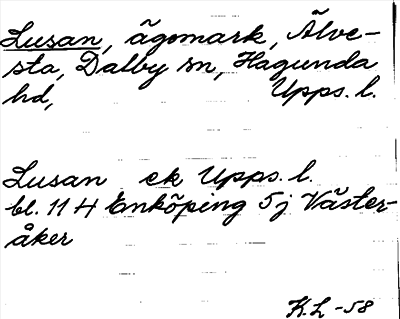 Lusan, ägomark, Älve-
sta, Dalby sn, Hagunda
hd, Upps. l.
Lusan ek Upps. l.
bl. 114 Enköping 5j Väster-
åker
K.L -58